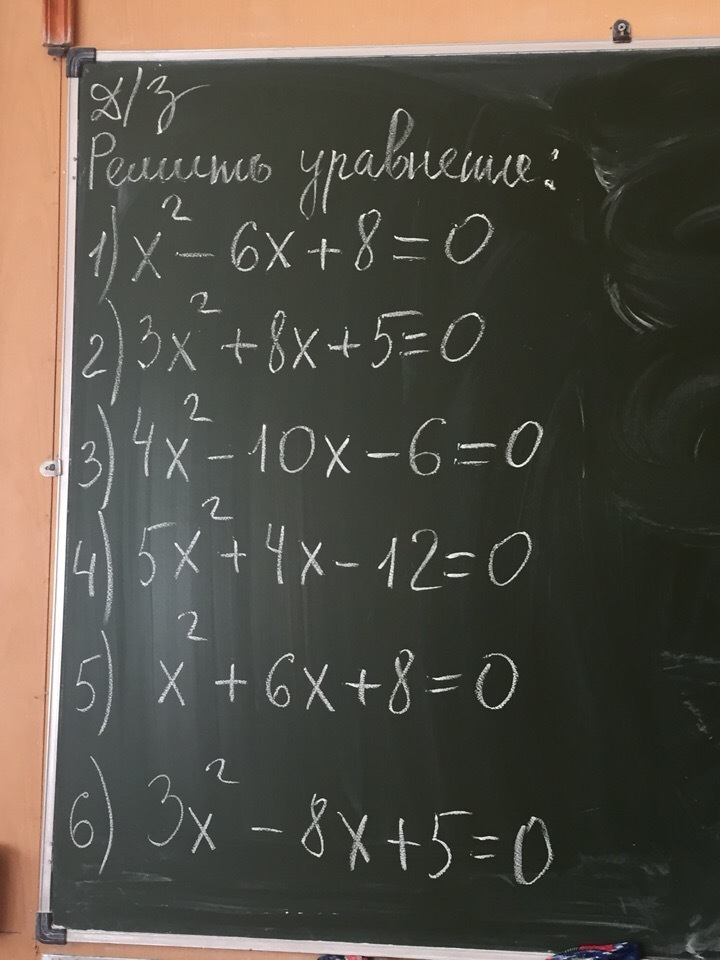 Д/з
Решить уравнения:
1) x² - 6x + 8 = 0
2) 3x² + 8x + 5 = 0
3) 4x² - 10x - 6 = 0
4) 5x² + 4x - 12 = 0
5) x² + 6x + 8 = 0
6) 3x² - 8x + 5 = 0